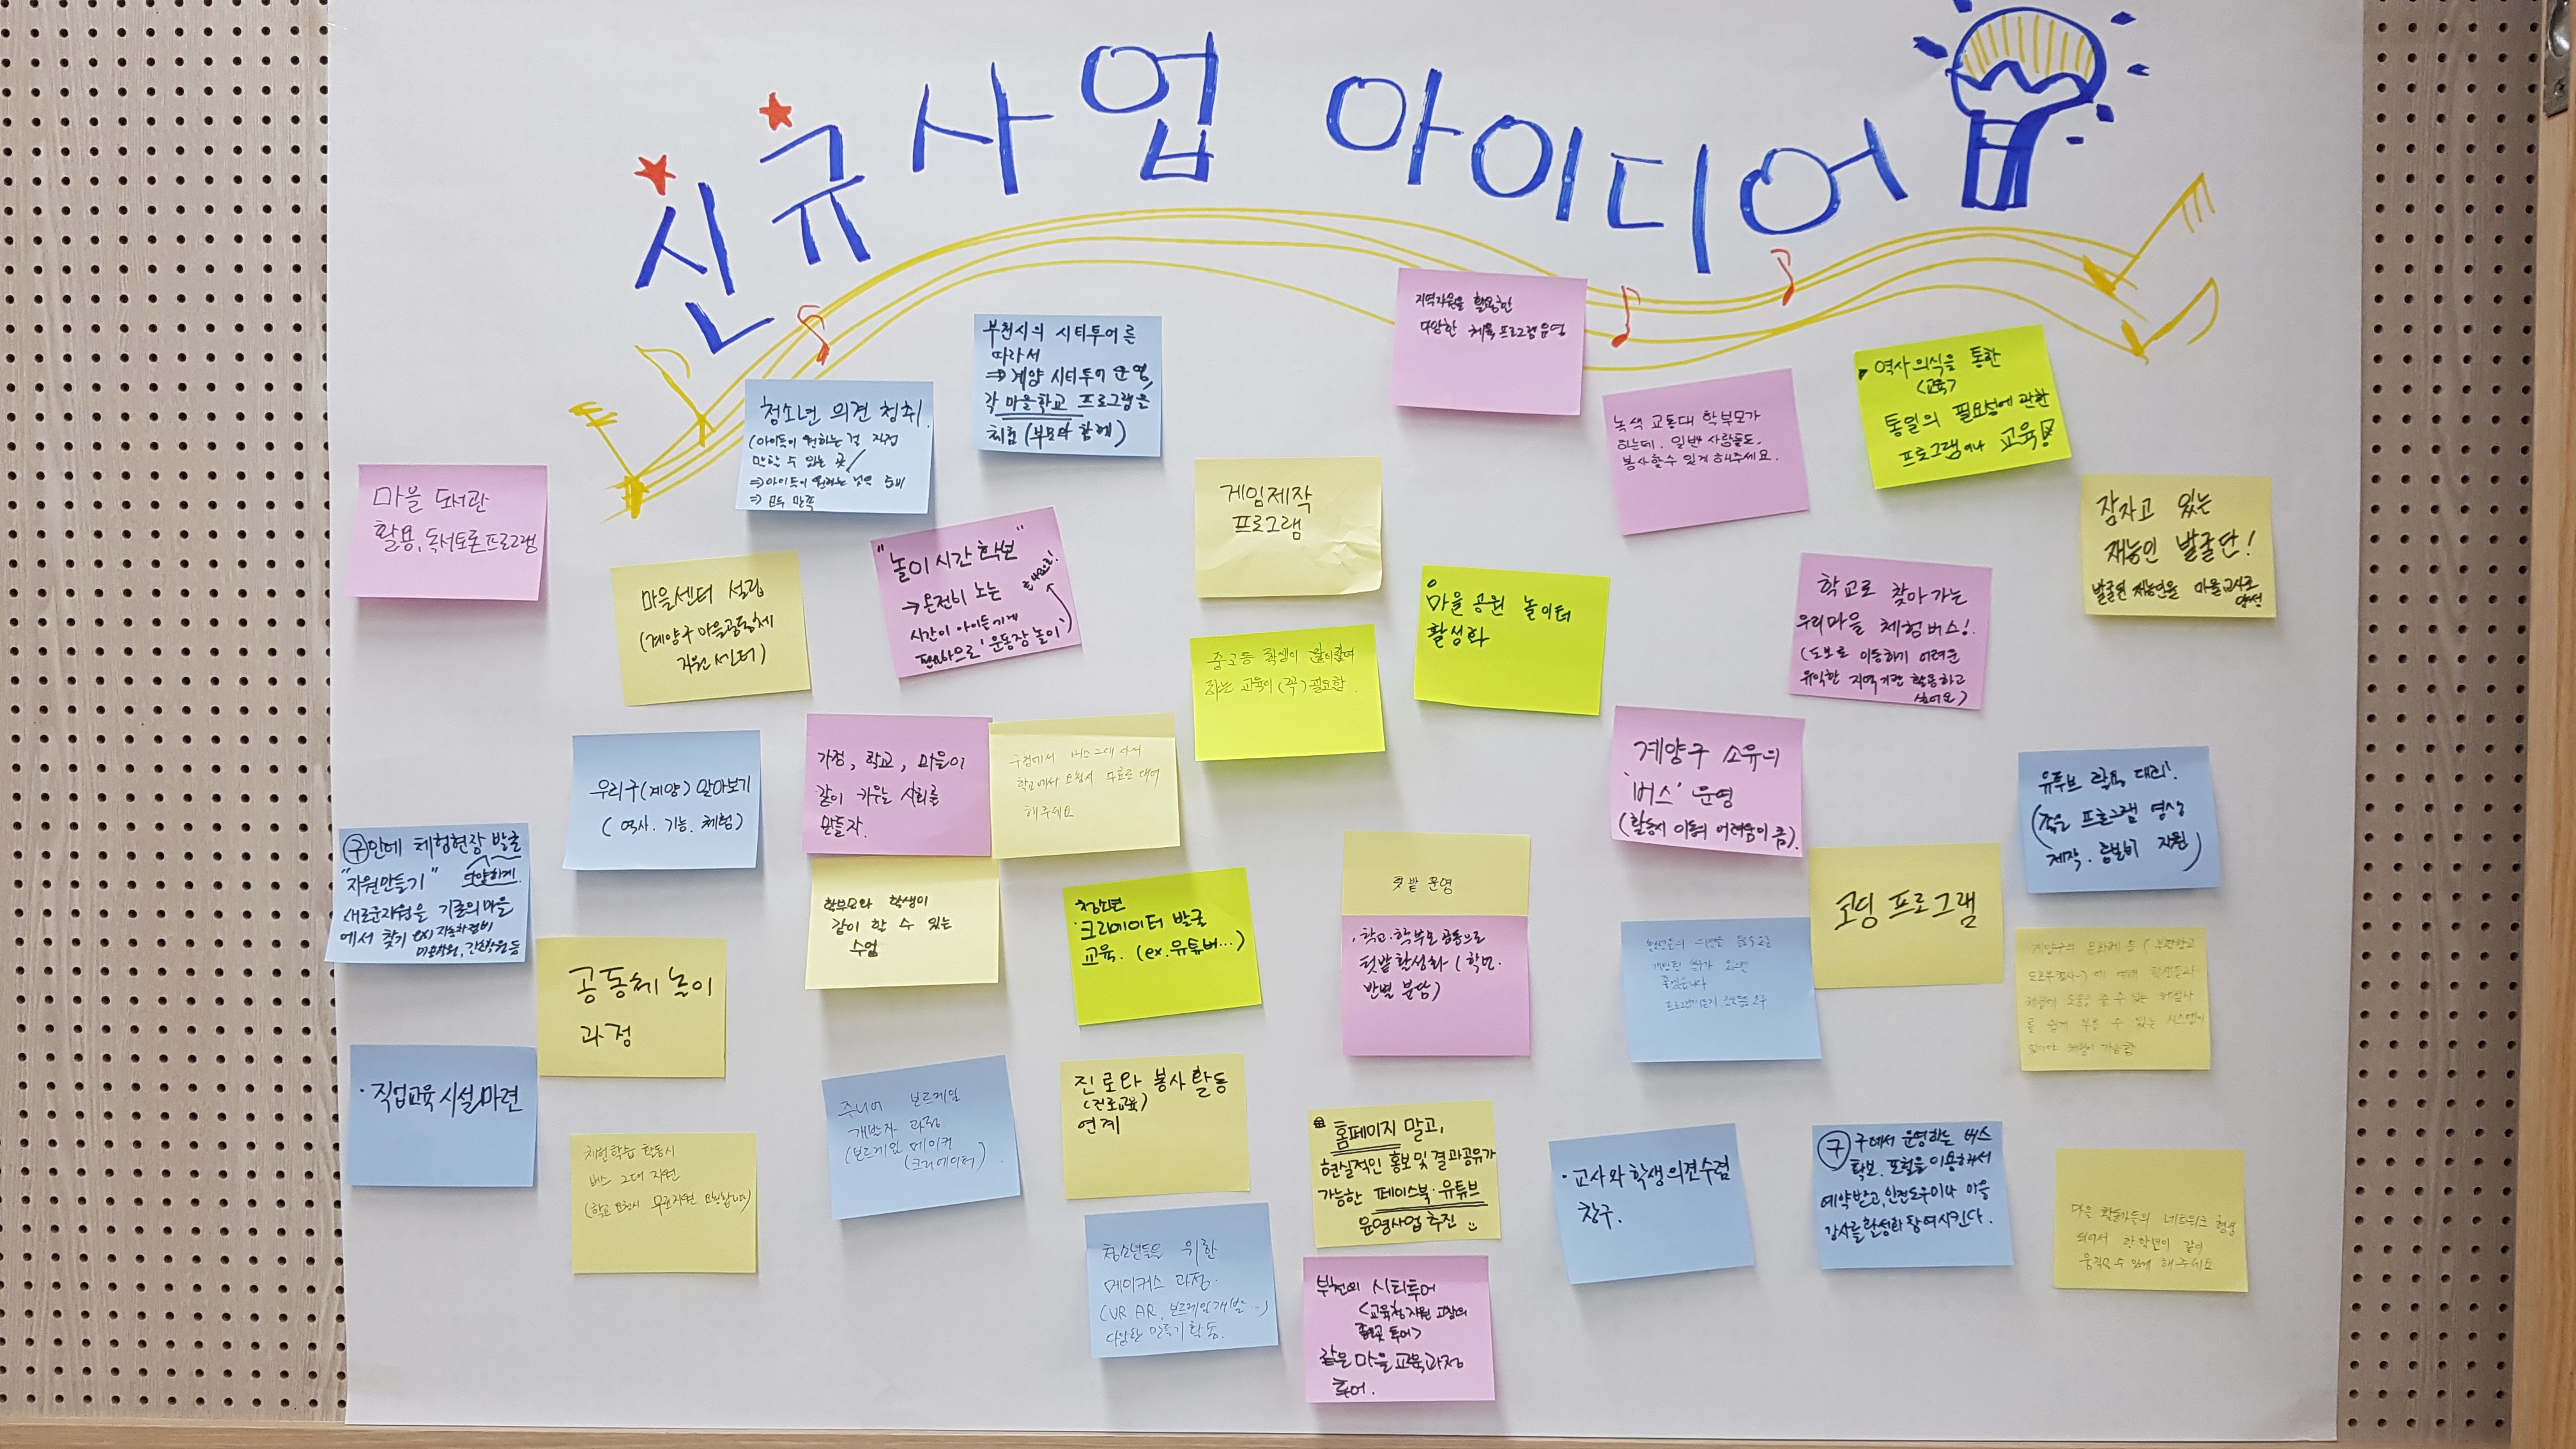 신규사업 아이디어
지역자원을 활용한
다양한 체육프로그램운영
부천시의 시티투어를
따라서
⇒ 계양 시티투어 운영,
각 마을학교 프로그램을
체험 (부모와 함께)
청소년 의견 청취.
(아이들이 원하는 걸 직접
말할 수 있는 곳
⇒ 아이들이 원하는 영역 준비
⇒ 모두 만족
녹색 교통대 학부모가
하는데, 일반 사람들도,
봉사할수 있게 해주세요.
역사의식을 통한
<교육>
통일의 필요성에 관한
프로그램이나 교육!
마을 도서관
활용, 독서토론프로그램
게임제작
프로그램
잠자고 있는
재능인 발굴단!
발굴된 재능인을 마을교사로
양성
마을센터 설립
(계양구마을공동체
지원센터)
"놀이시간 확보"
→ 온전히 노는
시간이 아이들에게
필요하므로! '운동장놀이')
마을공원 놀이터
활성화
학교로 찾아가는
우리마을 체험버스!
(도보로 이동하기 어려운
유익한 지역기관 활용하고
싶어요)
중고등 학생이
하는 교육이 (꼭) 필요함.
우리구(계양) 알아보기
( 역사. 기능. 체험)
가정, 학교, 마을이
같이 키우는 사회를
만들자.
구청에서 버스 2대 사서
학교에서 요청시 무료로 대여
해주세요
계양구 소유의
'버스' 운영
(활동시 이동의 어려움이 큼).
유튜브 교육 대회.
(작은 프로그램 영상
제작. 홍보비 지원)
구안에 체험현장 발굴
"자원만들기" 다양하게.
새로운자원을 기존의 마을
에서 찾기 ex) 자동차정비
미용학원, 간호학원등
학부모와 학생이
같이 할 수 있는
수업
청소년
·크리에이터 발굴
교육. (ex.유튜버…)
텃밭 운영
·학교·학부모 공동으로
텃밭활성화 (학년.
반별 분담)
코딩 프로그램
공동체놀이
과정
계양구의 문화재 등 (부평향교
체험에 도움을 줄 수 있는 해설사
를 쉽게 부를 수 있는 시스템이
있어야 체험이 가능함
·직업교육시설마련
주니어 보드게임
개발자 과정
(보드게임 메이커
(크리에이터)
진로와 봉사활동
(진로교육)
연계
체험학습 활동시
버스 2대 지원
(학교 요청시 무료지원 요청합니다)
홈페이지 말고,
현실적인 홍보및결과공유가
가능한 페이스북·유튜브
운영사업추진
·교사와 학생의견수렴
창구.
구 구에서 운영하는 버스
확보. 포털을이용해서
예약받고, 안전도우미나 마을
강사를 활성화 참여시킨다.
마을 활동가들의 네트워크 형성
되어서 한학년이 같이
움직일 수 있게 해주세요
청소년들을 위한
메이커스 과정.
(VR AR, 보드게임개발…)
다양한 만들기활동.
부천의 시티투어
<교육청지원 고장의
중요곳 투어>
같은 마을교육과정
투어.